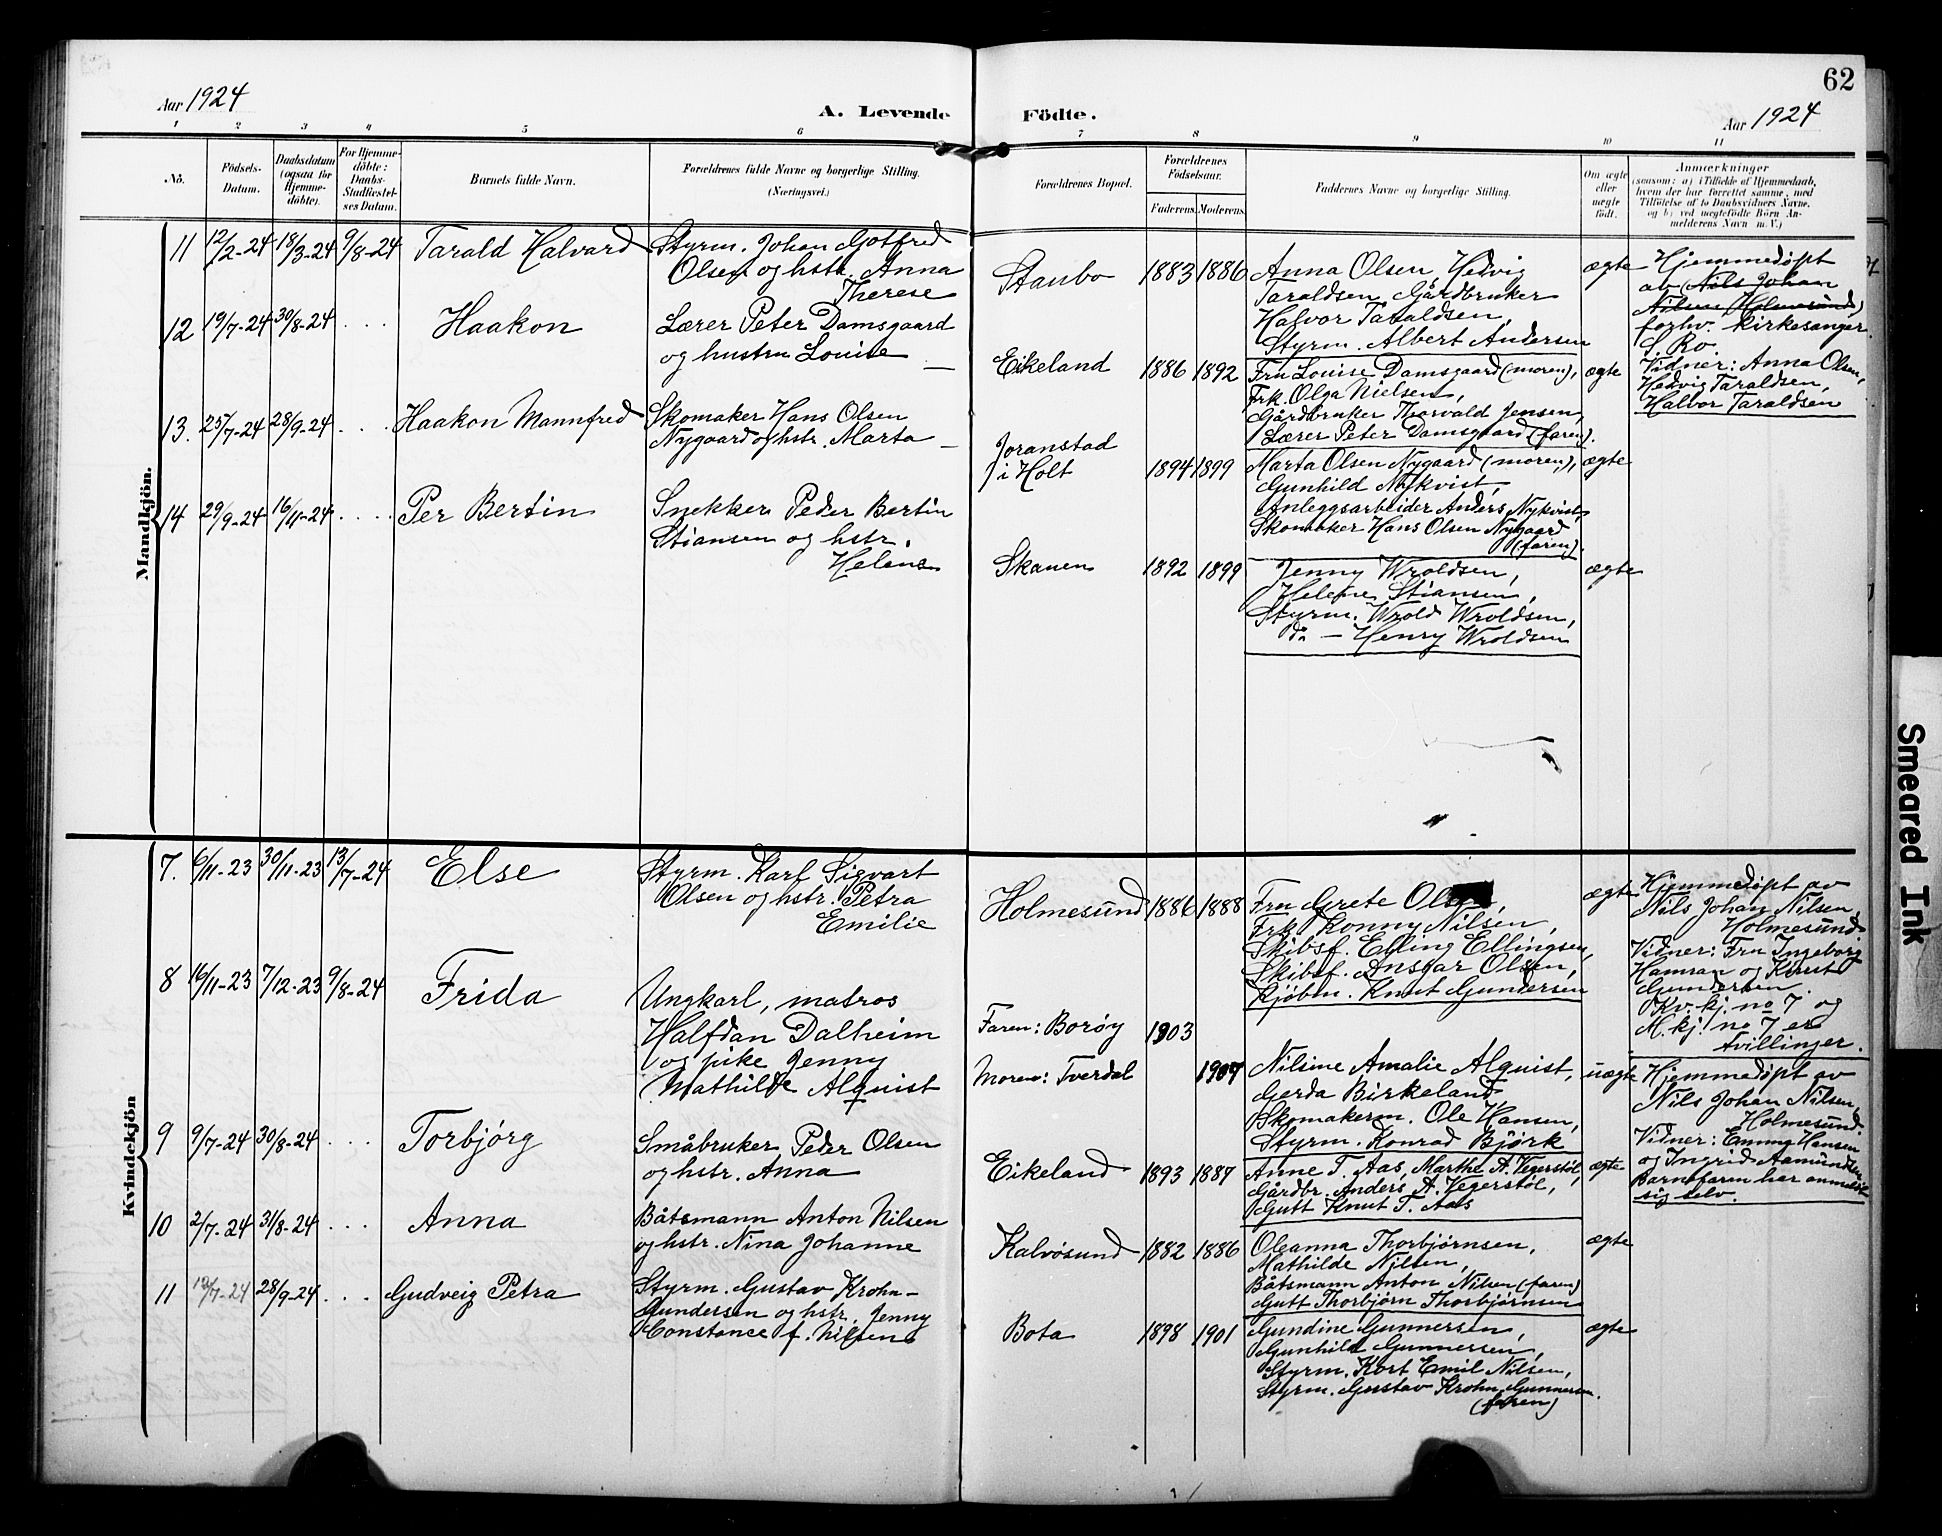 62
Aar 1924
A. Levende
Födte.
Aar 1924
1 2 3 4 5 6 7 8 9 10 11
Nô.
Födsels-
Datum.
Daabsdatum
(ogsaa for
Hjemme-
döbte).
For Hjemme-
döbte:
Daabs-
Stadfæstel-
ses Datum.
Barnets fulde Navn.
Forældrenes fulde Navne og borgerlige Stilling.
(Næringsvei.)
Forældrenes Bopæl.
Forældrenes
Födselsaar.
Faderens. Moderens.
Faddernes Navne og borgerlige Stilling.
Om ægte
eller
uægte
födt.
Anmærkninger
(saasom: a) i Tilfælde af Hjemmedaab,
hvem der har forrettet samme, med
Tilföielse af to Daabsvidners Navne,
og b) ved uægtefödte Börn An-
melderens Navn m. V.)
Mandkjön.
11 12/2-24 18/3-24 9/8-24 Tarald Halvard
Styrm. Johan Gotfred
Olsen og hstr. Anna
Therese
Staubo 1883 1886
Anna Olsen, Hedvig
Taraldsen, Gårdbruker
Halvor Taraldsen,
Styrm. Albert Andersen
ægte
Hjemmedøpt
av (Nils Johan
Nilsen (Holmesund)
forhv. kirkesanger
S. Ro.
Vidner: Anna Olsen,
Hedvig Taraldsen,
Halvor Taraldsen
12 19/7-24 30/8-24 . . . Haakon
Lærer Peter Damsgaard
og hustru Louise —
Eikeland 1886 1892
Fru Louise Damsgaard (moren),
Frk. Olga Nielsen,
Gårdbruker Thorvald Jensen,
Lærer Peter Damsgaard (faren).
ægte
13. 25/7-24 28/9-24 . . . Haakon Mannfred
Skomaker Hans Olsen
Nygaard og hstr. Marta —
Joranstad
i Holt
1894 1899
Marta Olsen Nygaard (moren),
Gunhild Nykvist,
Anleggsarbeider Anders Nykvist,
Skomaker Hans Olsen Nygaard
(faren).
ægte
14 29/9-24 16/11-24 . . . . Per Bertin
Snekker Peder Bertin
Stiansen og hstr.
Helene
Skauen 1892 1899
Jenny Wroldsen,
Helene Stiansen,
Styrm. Wrold Wroldsen,
do — Henry Wroldsen
ægte
Kvindekjön
7. 6/11-23 30/11-23 13/7-24 Else
Styrm. Karl Sigvart
Olsen og hstr. Petra
Emilie
Holmesund 1886 1888
Fru Grete Olsen,
Frk. Konny Nilsen,
Skibsf. Elling Ellingsen,
Skibsf. Ansgar Olsen,
Kjøbm. Knut Gundersen
ægte
Hjemmedøpt av
Nils Johan Nilsen,
Holmesund
Vidner: Fru Ingeborg
Hamran og Knut
Gundersen.
Kv.kj. no 7. og
M.kj. no 7 er
tvillinger.
8 16/11-23 7/12-23 9/8-24 Frida
Ungkarl, matros
Halfdan Dalheim
og pike Jenny
Mathilde Alquist
Faren: Borøy 1903
Moren: Tverdal 1907
Nilsine Amalie Alquist,
Gerda Birkeland,
Skomakerm. Ole Hansen,
Styrm. Konrad Bjørk
uægte
Hjemmedøpt av
Nils Johan Nilsen,
Holmesund.
Vidner: Emma Hansen
og Ingrid Aamundsen
Barnefaren har anmeldt
sig selv.
9 9/7-24 30/8-24 . . . Torbjørg
Småbruker Peder Olsen
og hstr. Anna
Eikeland 1893 1887
Anne T. Aas, Marthe A. Vegerstøl,
Gårdbr. Anders A. Vegerstøl,
Gutt Knut T. Aas
ægte
10 2/7-24 31/8-24 . . . Anna
Båtsmann Anton Nilsen
og hstr. Nina Johanne
Kalvøsund 1882 1886
Oleanna Thorbjørnsen,
Mathilde Nilsen,
Båtsmann Anton Nilsen (faren)
Gutt Thorbjørn Thorbjørnsen
ægte
11 19/7-24 28/9-24 . . . Gudveig Petra
Styrm. Gustav Krohn-
Gundersen og hstr. Jenny
Constance f. Nilsen
Bota 1898 1901
Gundine Gunnersen,
Gunhild Gunnersen,
Styrm. Kort Emil Nilsen,
Styrm. Gustav Krohn Gunnersen.
(faren)
ægte
Smeared Ink